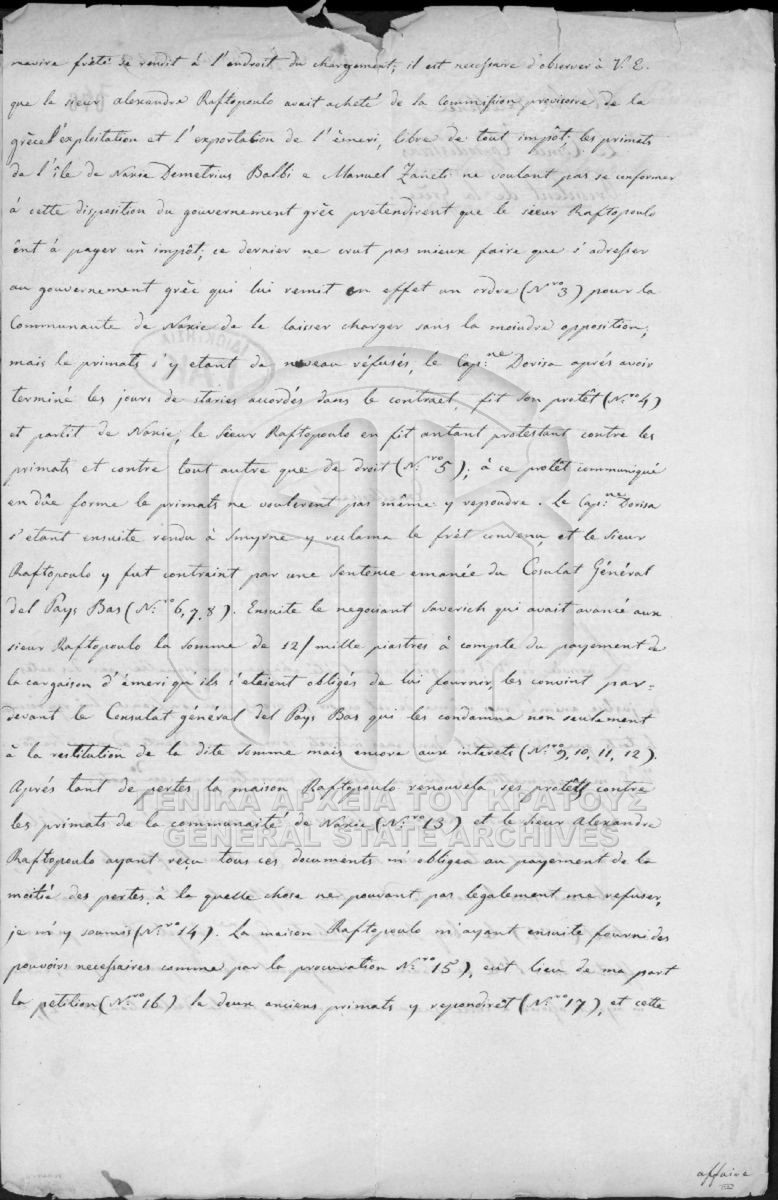 navire frété se rendit à l'endroit du chargement; il est necessaire d'observer à V. E.
que le sieur Alexandre Raftopoulo avait acheté de la Commission provisoire de la
grèce l'exploitation et l'exportation de l'émeri, libre de tout impôt, les primats
de l'île de Naxie Demetrius Balbi e Manuel Zaneti ne voulant pas se conformer
á cette disposition du gouvernement grêc pretendirent que le sieur Raftopoulo
ênt á payer un impôt; ce dernier ne crut pas mieux faire que s'adresser
au gouvernement grêc qui lui remit en effet un ordre (N.ro 3) pour la
Communaute de Naxie de le laisser charger sans la moindre opposition;
mais le primats s'y etant de nuveau réfusés, le Cap:ne Dorisa aprés avoir
terminé les jours de staries accordés dans le contract, fit son protêt (N.ro 4)
et partit de Naxie, le Sieur Raftopoulo en fit autant protestant contre les
primats et contre tout autre que de droit (N.ro 5); á ce protêt communiqué
en dûe forme le primats ne voulurent pas même y repondre. Le Cap:ne Dorisa
s'etant ensuite rendu à Smyrne y reclama le frêt convenu, et le Sieur
Raftopoulo y fut contraint par une Sentence emanée du Cosulat Général
del Pays Bas (N.ro 6, 7, 8). Ensuite le negociant Saverich qui avait avancé aux
sieur Raftopoulo la somme de 12/mille piastres à compte du payement de
la cargaison d'émeri qu'ils s'etaient obligés de lui fournir, les convint par=
devant le Consulat général del Pays Bas qui les condamna non seulement
à la restitution de la dite somme mais encore aux interets (N.ro 9, 10, 11, 12).
Aprés tant de pertes la maison Raftopoulo renouvela ses protêts contre
les primats de la communaité de Naxie (N.ro 13) et le Sieur Alexandre
Raftopoulo ayant reçu tous ces documents m'obligea au payement de la
moitié des pertes, à la quelle chose ne pouvant pas legalement me refuser,
je m'y soumis (N.ro 14). La maison Raftopoulo m'ayant ensuite fourni des
pouvoirs necessaires comme par la procuration N.ro 15), eut lieu de ma part
la petition (N.ro 16) le deux anciens primats y repondirêt (N.ro 17), et cette
affaire
ΓΕΝΙΚΑ ΑΡΧΕΙΑ ΤΟΥ ΚΡΑΤΟΥΣ
GENERAL STATE ARCHIVES